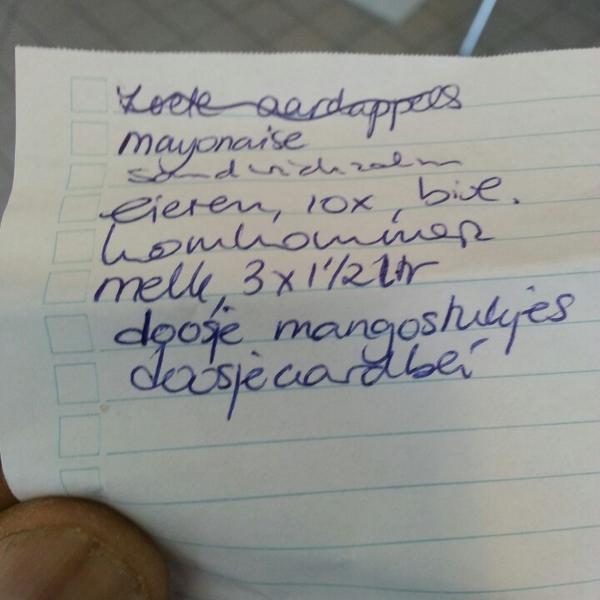 zoete aardappels
mayonaise
sandwichzalm
eieren, 10x, biol.
komkommer
melk, 3 x 1 1/2 ltr
doosje mangostukjes
doosje aardbei